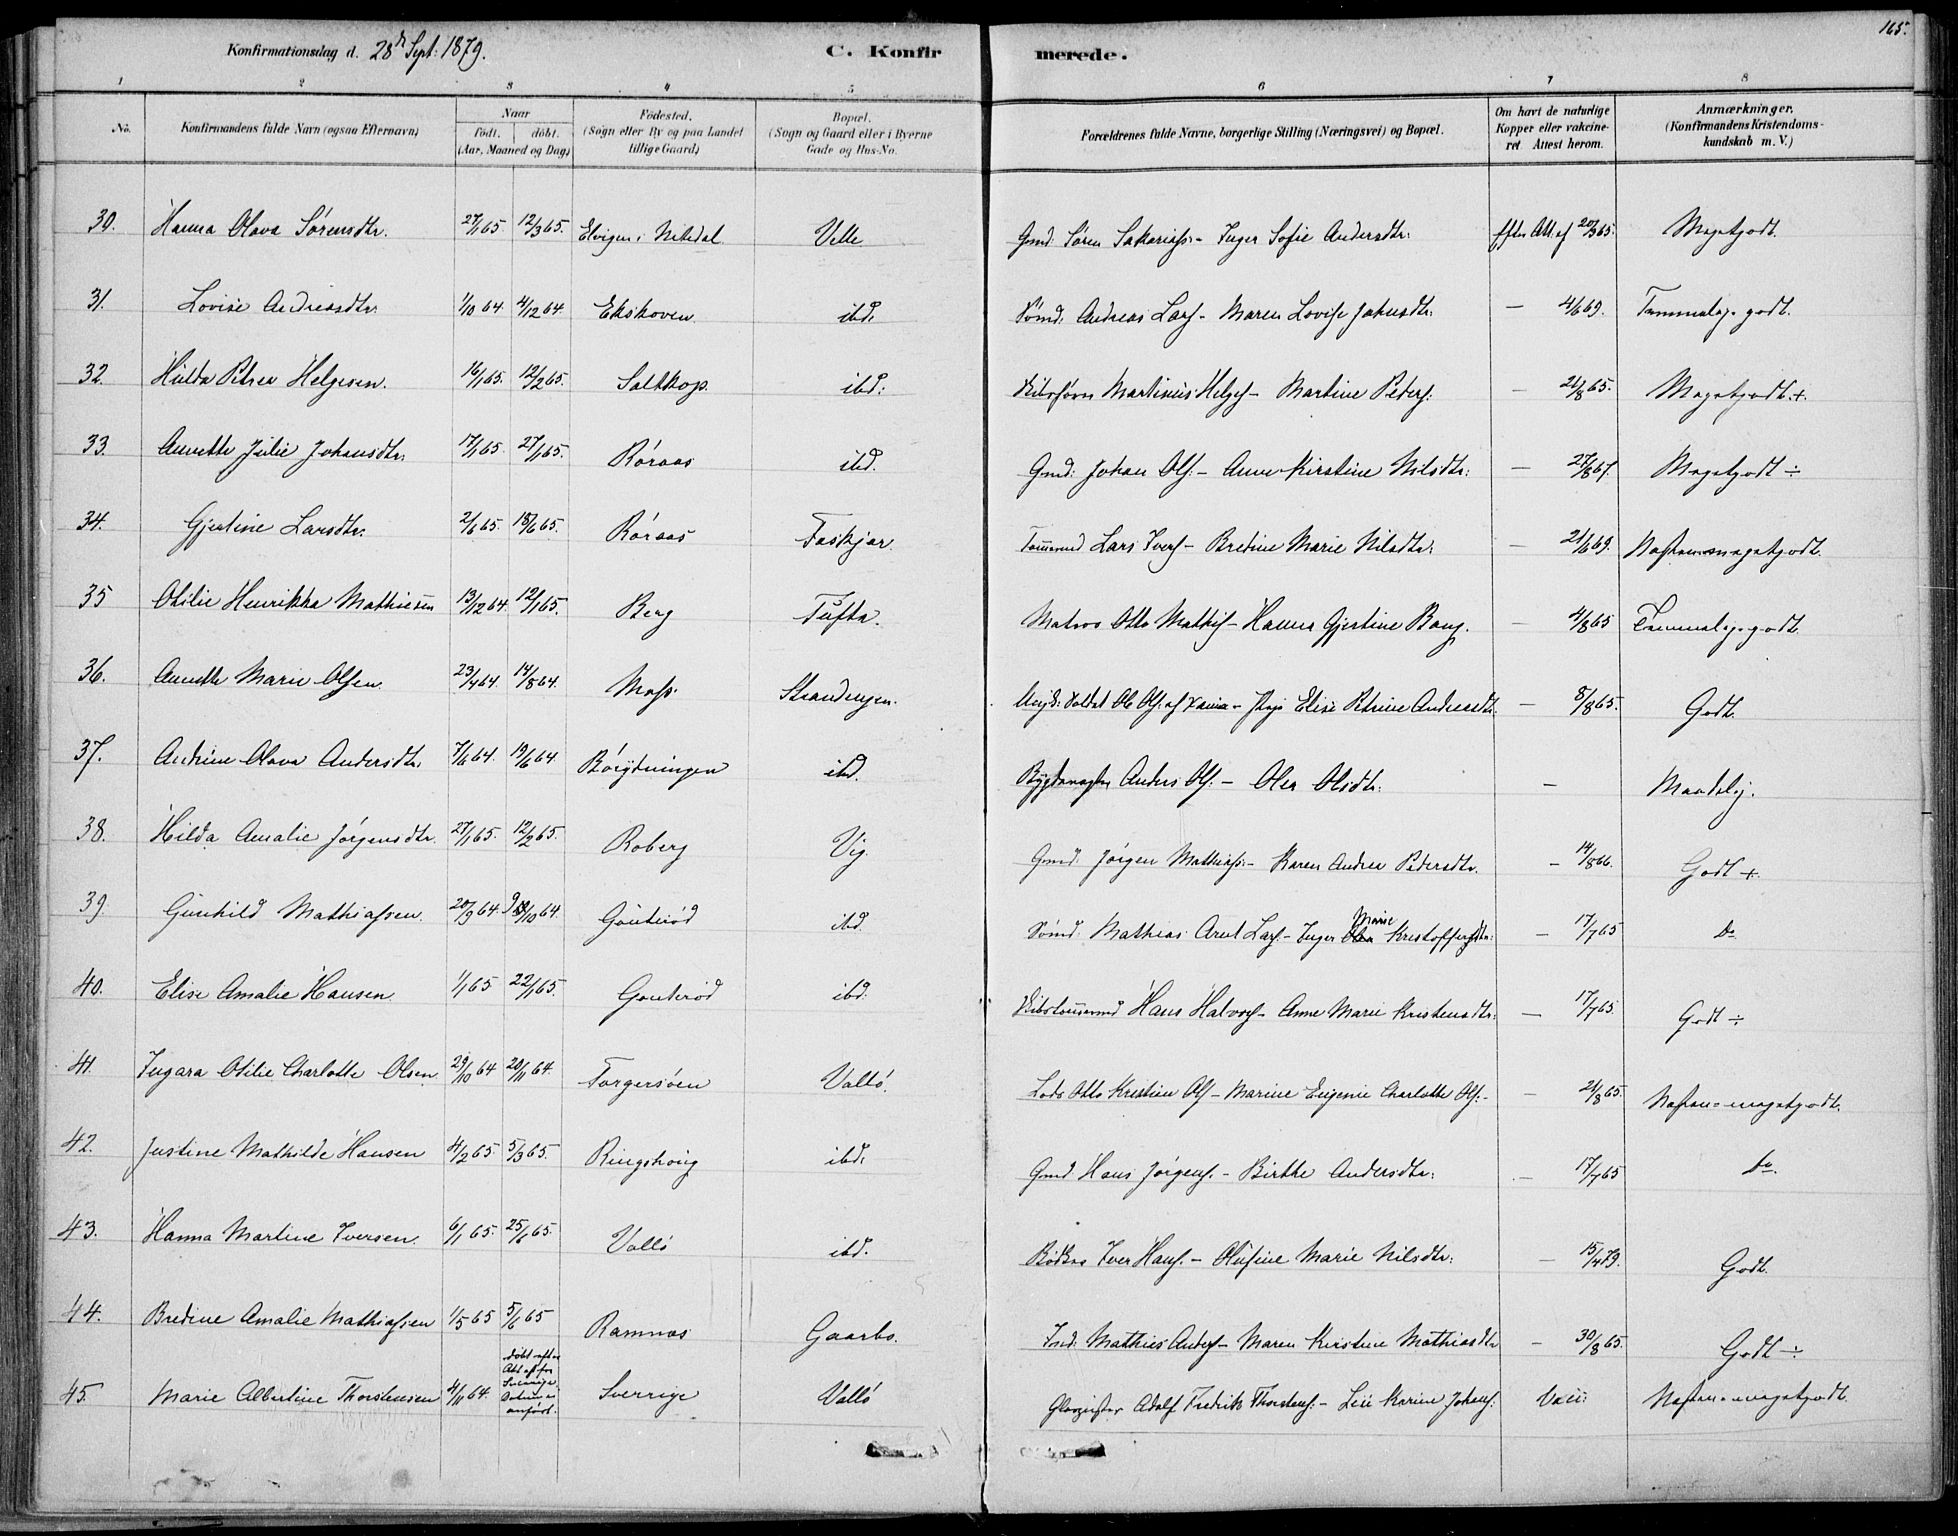 165.
Konfirmationsdag d. 28de Sept: 1879.
C. Konfirmerede.
1 2 3 4 5 6 7 8
No.
Konfirmandens fulde Navn (ogsaa Efternavn)
Naar
født. døbt.
(Aar, Maaned og Dag)
Fødested.
(Sogn eller By og paa Landet
tillige Gaard)
Bopæl.
(Sogn og Gaard eller i Byerne
Gade og Hus-No.
Forældrenes fulde Navne, borgerlige Stilling (Næringsvei) og Bopæl.
Om havt de naturlige
Kopper eller vakcine-
ret. Attest herom.
Anmærkninger.
(Konfirmandens Kristendoms-
kundskab m. V.)
30. Hanna Olava Sørensdtr. 27/1 65. 12/3 65. i Nitedal Velle Gmd: Søren Sakariass: - Inger Sofie Andersdtr: efter Att. af 20/9 65. Megetgodt.
31. Lovise Andreasdtr. 1/10 64 4/12 64. Ekskoven. ibd: Sømd: Andreas Lars - Maren Lovise Johnsdtr: — 4/6 69. Temmelig godt.
32. Hulda Petrea Helgesen. 16/1 65. 12/2 65. Saltkop. ibd: Martinius Helges - Martine Peders: — 21/8 65. Megetgodt. +.
33. Annette Julie Johansdtr: 17/1 65. 27/1 65. Røraas ibd. Gmd: Johan Ols: - Anne Kirstine Nilsdtr: — 27/8 67. Megetgodt ÷
34. Gjertine Larsdtr. 2/6 65. 18/6 65. Røraas Foskjær Tømmermd Lars Ivers - Bredine Marie Nilsdtr: — 21/6 69. Næsten megetgodt.
35 Otilie Henrikka Mathiesen 13/12 64. 12/1 65. Berg Tufte. Matros Otto Mathis - Hanna Gjertine Bang. — 4/8 65 Temmelig godt.
36. Annette Marie Olsen. 23/4 64. 14/8 64. Moss. Strandengen. Soldat Ole Ols: - Elise Petrine Andreasdtr. — 8/8 65. Godt.
37. Andrine Olava Andersdtr: 7/6 64. 19/6 64. ibd. Anders Ols: - Olea Olsdtr: — Maadelig.
38. Hilda Amalie Jørgensdtr. 27/1 65. 12/2 65. Roberg Vig. Gmd: Jørgen Mathiass: - Karen Andrea Pedersdtr. — 14/8 66. Godt +.
39. Gunhild Mathiassen. 20/9 64 9/10 64. Gouterød ibd. Sømd: Mathias Arnt Lars - Inger Marie Kristoffersdtr: — 17/7 65 Do
40. Elise Amalie Hansen. 1/1 65 22/1 65. Gouterød ibd: Skibstømmermd Hans Halvors - Anne Marie Kristensdtr: — 17/7 65. Godt ÷
41. Ingara Otilie Charlotte Olsen 29/10 64 20/11 64. Torgersøen Valló. Lods Otto Kristian Ols - Marine Eugenie Charlotte Ols: - — 21/8 65. Næsten megetgodt.
42. Justine Mathilde Hansen 4/2 65 5/3 65. Ringshoug ibd: Gmd Hans Jørgens. - Birthe Andersdtr: — 17/7 65 Do.
43. Hanna Martine Iversen. 6/1 65. 25/6 65. Valló ibd. Bødker Iver Hans. - Olufine Marie Nilsdtr: — 15/4 79. Godt.
44. Bredine Amalie Mathiassen 1/5 65 5/6 65 Ramnæs Gaarbo. Inds: Mathias Anders - Maren Kirstine Mathiasdtr — 30/8 65. Godt ÷
45. Marie Albertine Thorstensen 4/11 64. døbt efter Att. af Sverrige Datum ei anført. Sverrige Valló Glarmester Adolf Fredrik Thorstens: - Lin Karine Johans: Vacc: Næsten megetgodt.